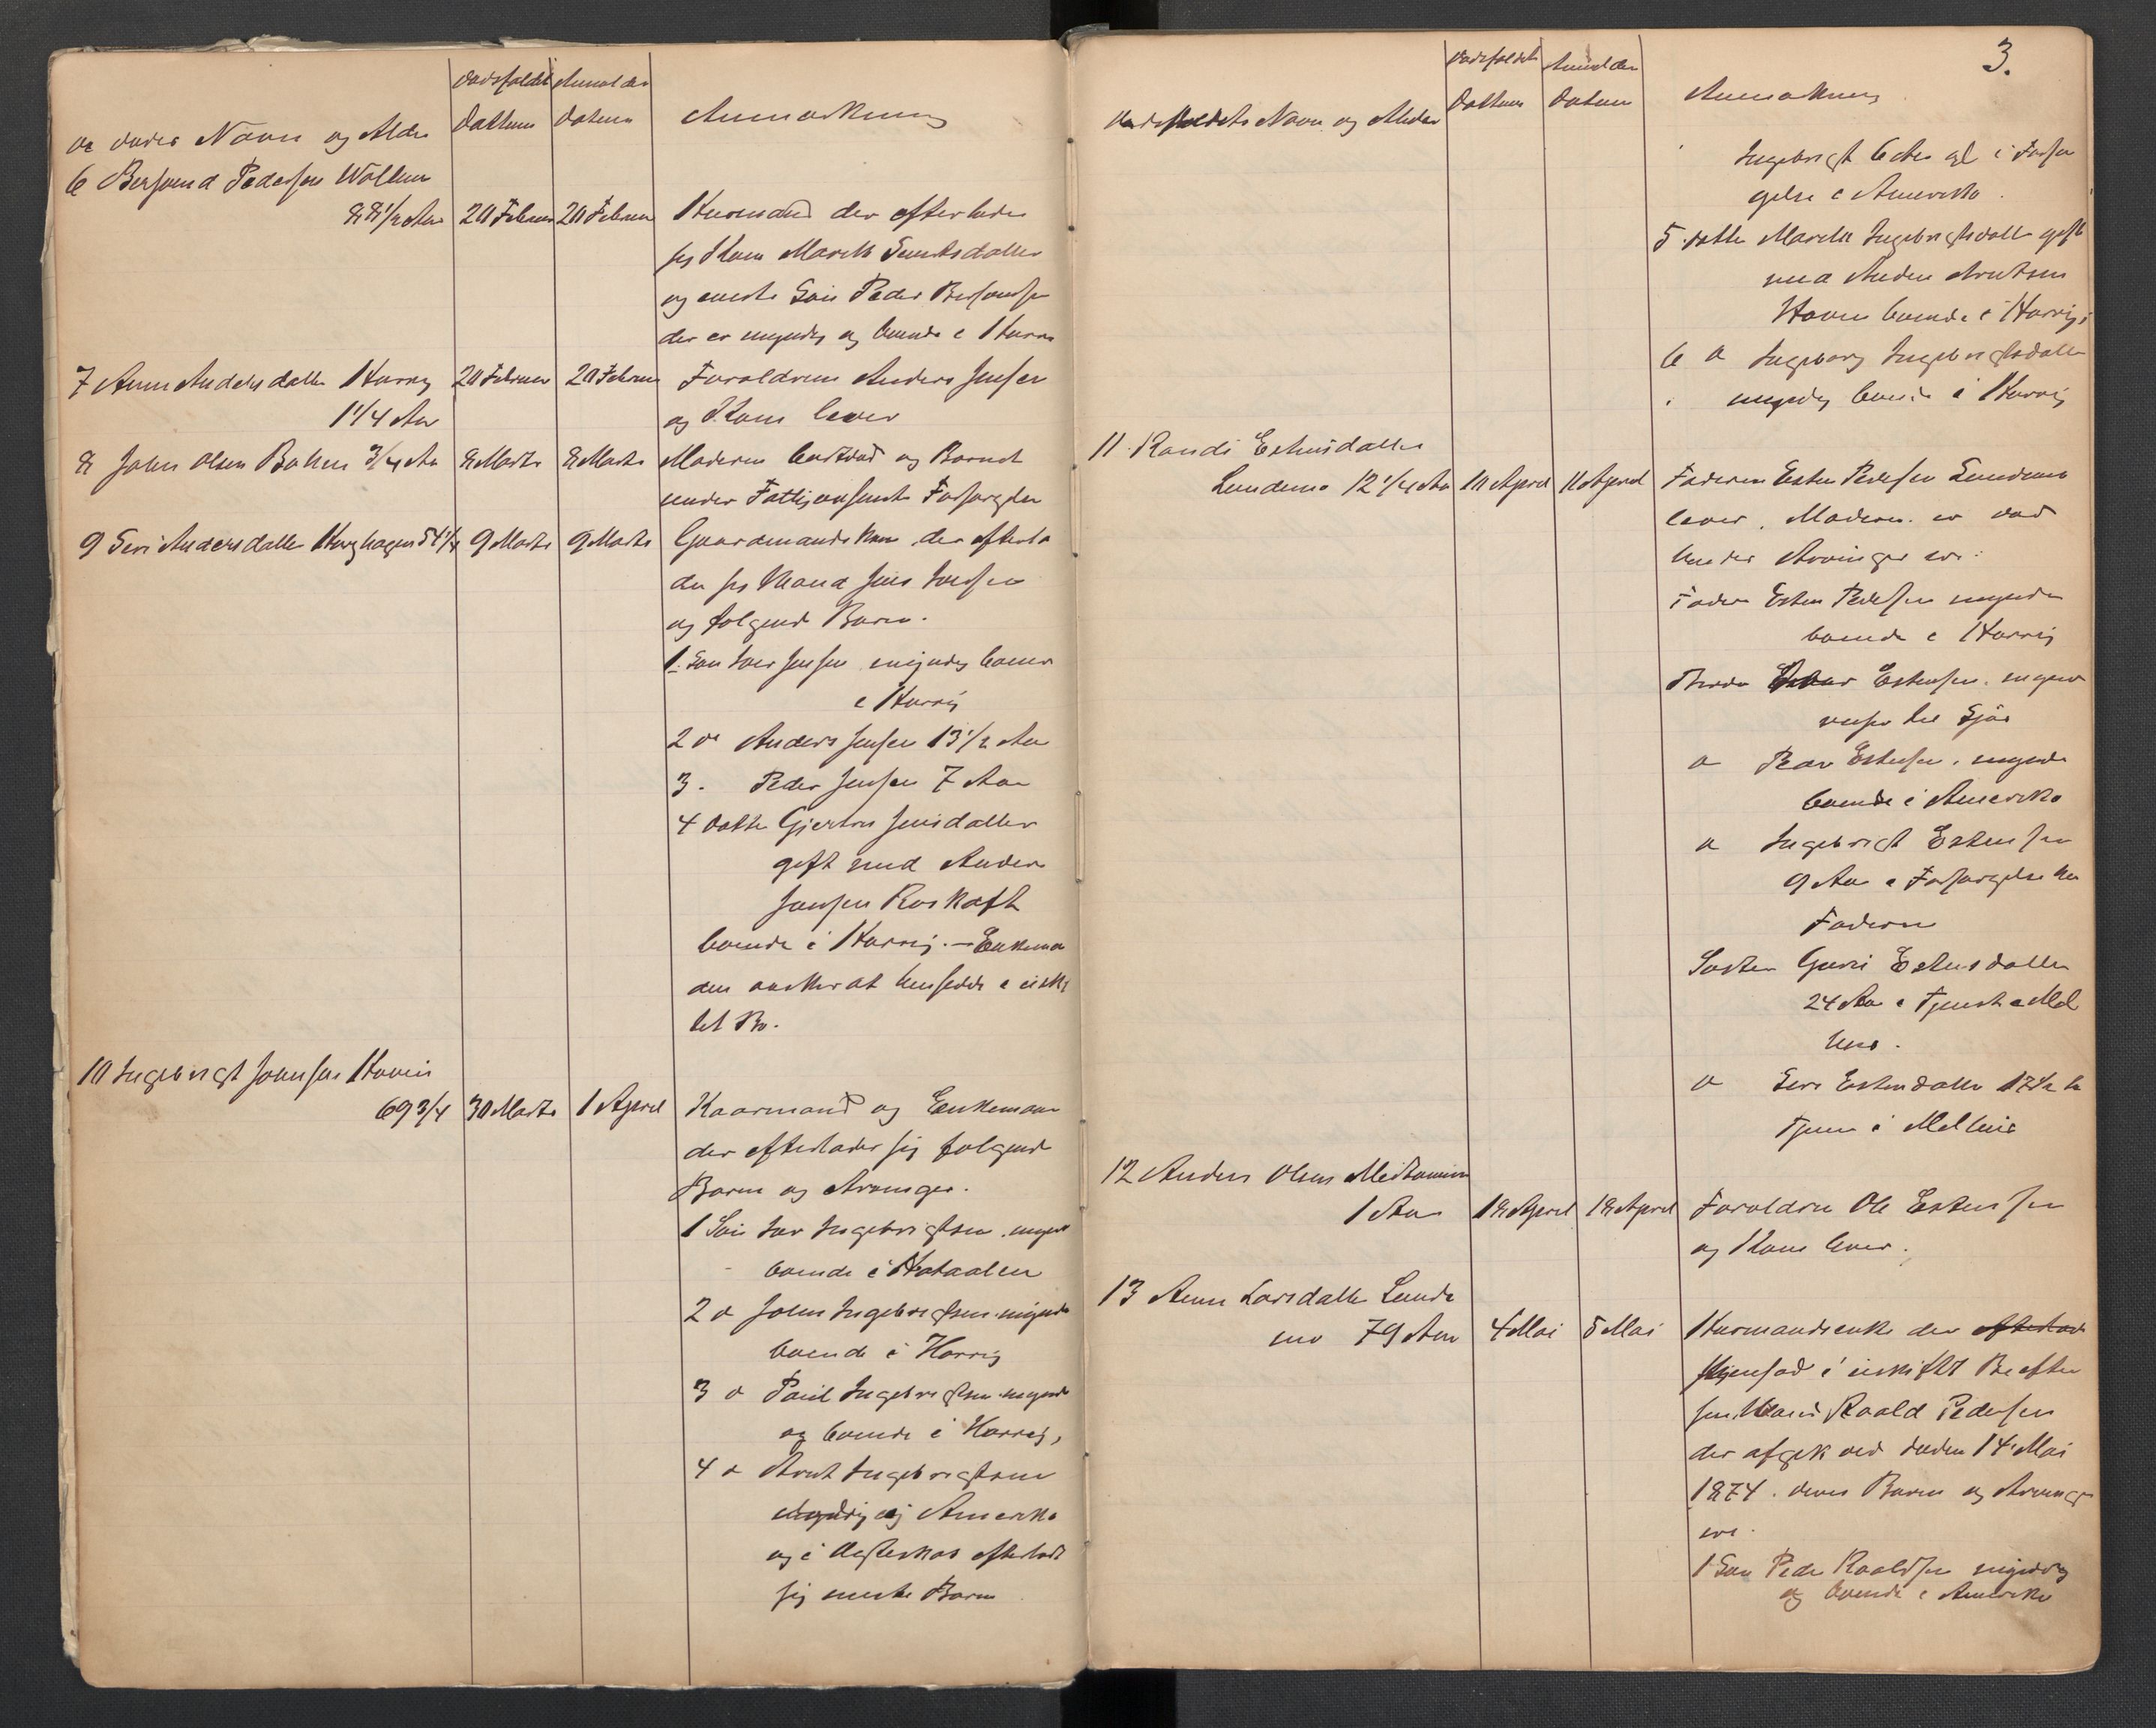 de dødes Navn og Alder
Dødsfaldet Datum
Anmeldes datum
Anmerkning
6 Bersvend Pedersen Wollum
88 1/2 Aar 20 Februar 20 Februar Huusmand der efterlader
sig Kone Marith
og eneste Søn Peder Bersvendsen
der er myndig og boende i Horrig
7 Anne Andersdatter Horrig 20 Februar 20 Februar Forældrene Anders Jensen
1 1/4 Aar og Kone lever
8 John Olsen Bakken 3/4 Aar 8 Marts 8 Marts Moderen bortdød og Barnet
under Fattigvæsenets Forsørgelse
9 Siri Andersdatter Horghagen 54 1/4 9 Marts 9 Marts Gaardmandskone der efterla
der sig Mand Jens
og følgende Børn.
1. Søn Iver Jensen myndig boende
i Horrig
2 do Anders Jensen 13 1/2 Aar
3. Peder Jensen 7 Aar
4 Datter Gjertru Jensdatter
gift med Anders
Jonsen Roskaft
boende i Horrig. — Enkeman
den ønsker at hensidde i uskif
tet Bo.
10 Ingebrigt Johnsen Hovin
69 3/4 30 Marts 1 April Kaarmand og Enkemand
der efterlader sig følgende
Børn og Arvinger.
1 Søn Iver Ingebrigtsen myndig
boende i Holtaalen
2 do John Ingebrigtsen myndig
boende i Horrig
3 do Paul Ingebrigtsen myndig
og boende i Horrig,
4 do Arnt Ingebrigtsen
myndig Amerika
og i efterladt
sig eneste Barn
3.
Dødsfaldets Navn og Alder
Dødsfaldets Datum
Anmeldes Datum
Anmerkning
Ingebrigt 6 Aar gl i Forsør
gelse i Amerika.
5 datter Marith Ingebrigtsdatter gift
med Anders Arntsen
Hovin boende i Horrig,
6 do Ingeborg Ingebrigtsdatter
myndig boende i Horrig
11. Randi Estensdatter
Lundemo 12 1/4 Aar 10 April 11 April Faderen Esten Pedersen Lundemo
lever. Moderen er død
hendes Arvinger ere:
Fader Esten Pedersen myndig
boende i Horrig
Broder Estensen myndig
reiser til Sjøs
do Peder Estensen, myndig
boende i Amerika
do Ingebrigt Estensen
9 Aar i Forsørgelse hos
Faderen
Søster Guri Estensdatter
24 Aar i Tjeneste i Mel
huus.
do Siri Estensdatter 17 1/2 Aar
tjener i Melhuus
12 Anders Olsen
1 Aar 18 April 18 April Forældre Ole Estensen
og Kone lever.
13 Anne Larsdatter Lunde
mo 79 Aar 4 Mai 5 Mai Huusmandsenke der efterlod
hensad i uskiftet Bo efter
sin Mand Roald Pedersen
der afgik ved døden 14 Mai
1874. deres Børn og Arvinger
ere.
1 Søn Peder Roaldsen myndig
og boende i Amerika